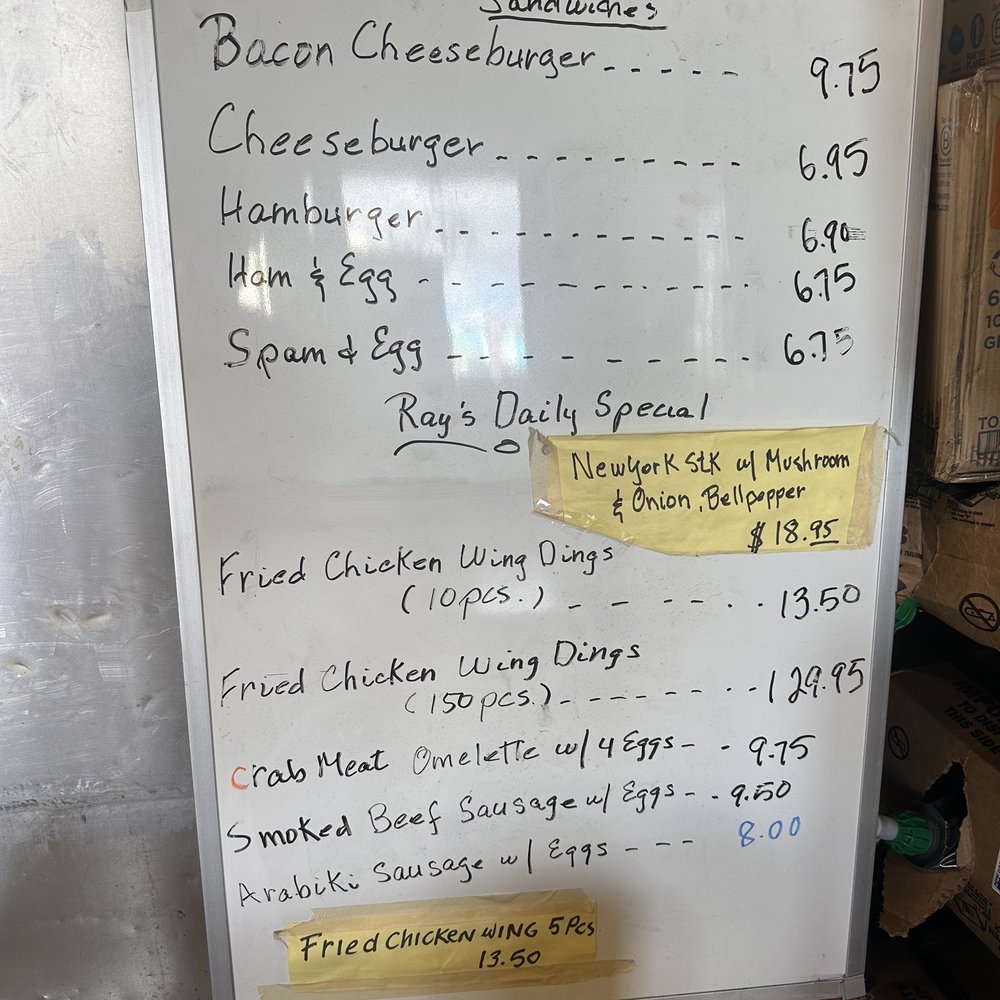 Sandwiches
Bacon Cheeseburger - - - - - 9.75
Cheeseburger - - - - - - - - - 6.95
Hamburger - - - - - - - - - - - 6.90
Ham & Egg - - - - - - - - - - - 6.75
Spam & Egg - - - - - - - - - 6.75
Ray's Daily Special
NewYork Stk w/ Mushroom
& Onion, Bellpepper
$18.95
Fried Chicken Wing Dings
(10pcs.) - - - - . . 13.50
Fried Chicken Wing Dings
(150pcs.) - - - - - - - . . 129.95
Crab Meat Omelette w/ 4 Eggs - - 9.75
Smoked Beef Sausage w/ Eggs - . 9.50
Arabiki Sausage w/ Eggs - - - 8.00
Fried Chicken Wing 5 Pcs
13.50